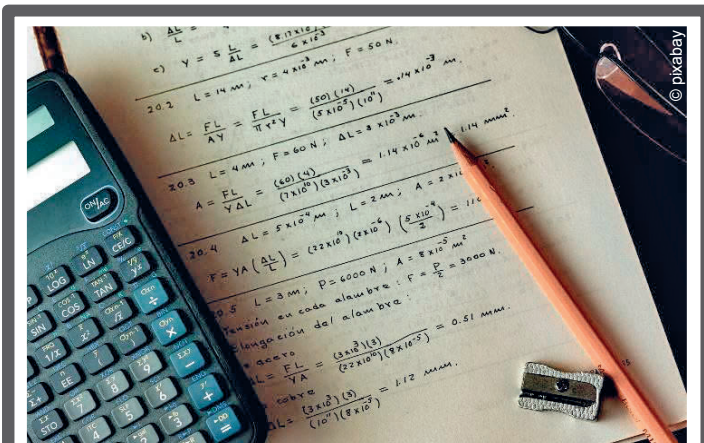 b) ΔL/L =
c) Y = 5 L/ΔL = (8.17x10 / 6x10⁻³
20.2 L = 14 m ; r = 4x10⁻³ m ; F = 50 N.
ΔL = FL/AY = FL/πr²Y = (50)(14)/(5x10⁻⁵)(10¹¹) = .14x10⁻³ m.
20.3 L = 4m ; F = 60N ; ΔL = 3x10⁻³ m.
A = FL/YΔL = (60)(4)/(7x10¹⁰)(3x10⁻³) = 1.14x10⁻⁶ m² 1.14 mm².
20.4 ΔL = 5x10⁻⁴ m ; L = 2m ; A = 2x10
F = YA (ΔL/L) = (22x10¹⁰)(2x10⁻⁶) (5x10⁻⁴/2) = 110
20.5 L = 3m ; P = 6000 N ; A = 8x10⁻⁵ m²
Tensión en cada alambre : F = P/2 = 3000 N.
Elongación del alambre :
acero
ΔL = FL/YA = (3x10³)(3)/(22x10¹⁰)(8x10⁻⁵) = 0.51 mm.
cobre
ΔL = (3x10³)(3)/(10¹¹)(8x10⁻⁵) = 1.12 mm.
ON/AC
LOG LN CE/C
SIN COS TAN yˣ ÷
1/x x² √x ( ) ×
EE 7 8 9 −
STO 4 5 6 +
3 =
© pixabay